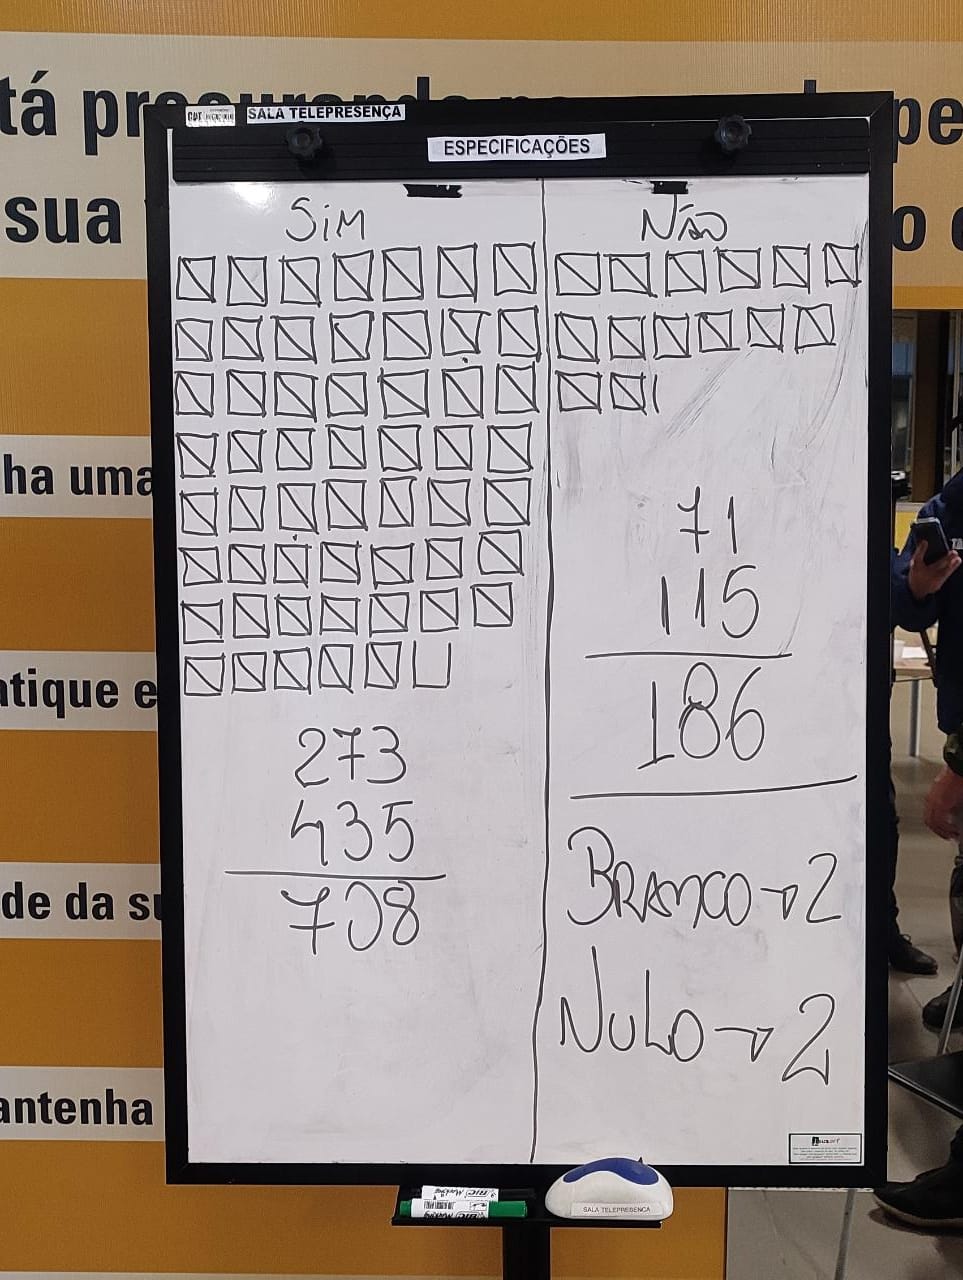 tá pr
pe
sua
o
SALA TELEPRESENÇA
ESPECIFICAÇÕES
SiM
NÃO
71
115
186
273
435
708
BRANCO → 2
NULO → 2
ha uma
atique e
de da su
antenha
BIC
SALA TELEPRESENÇA